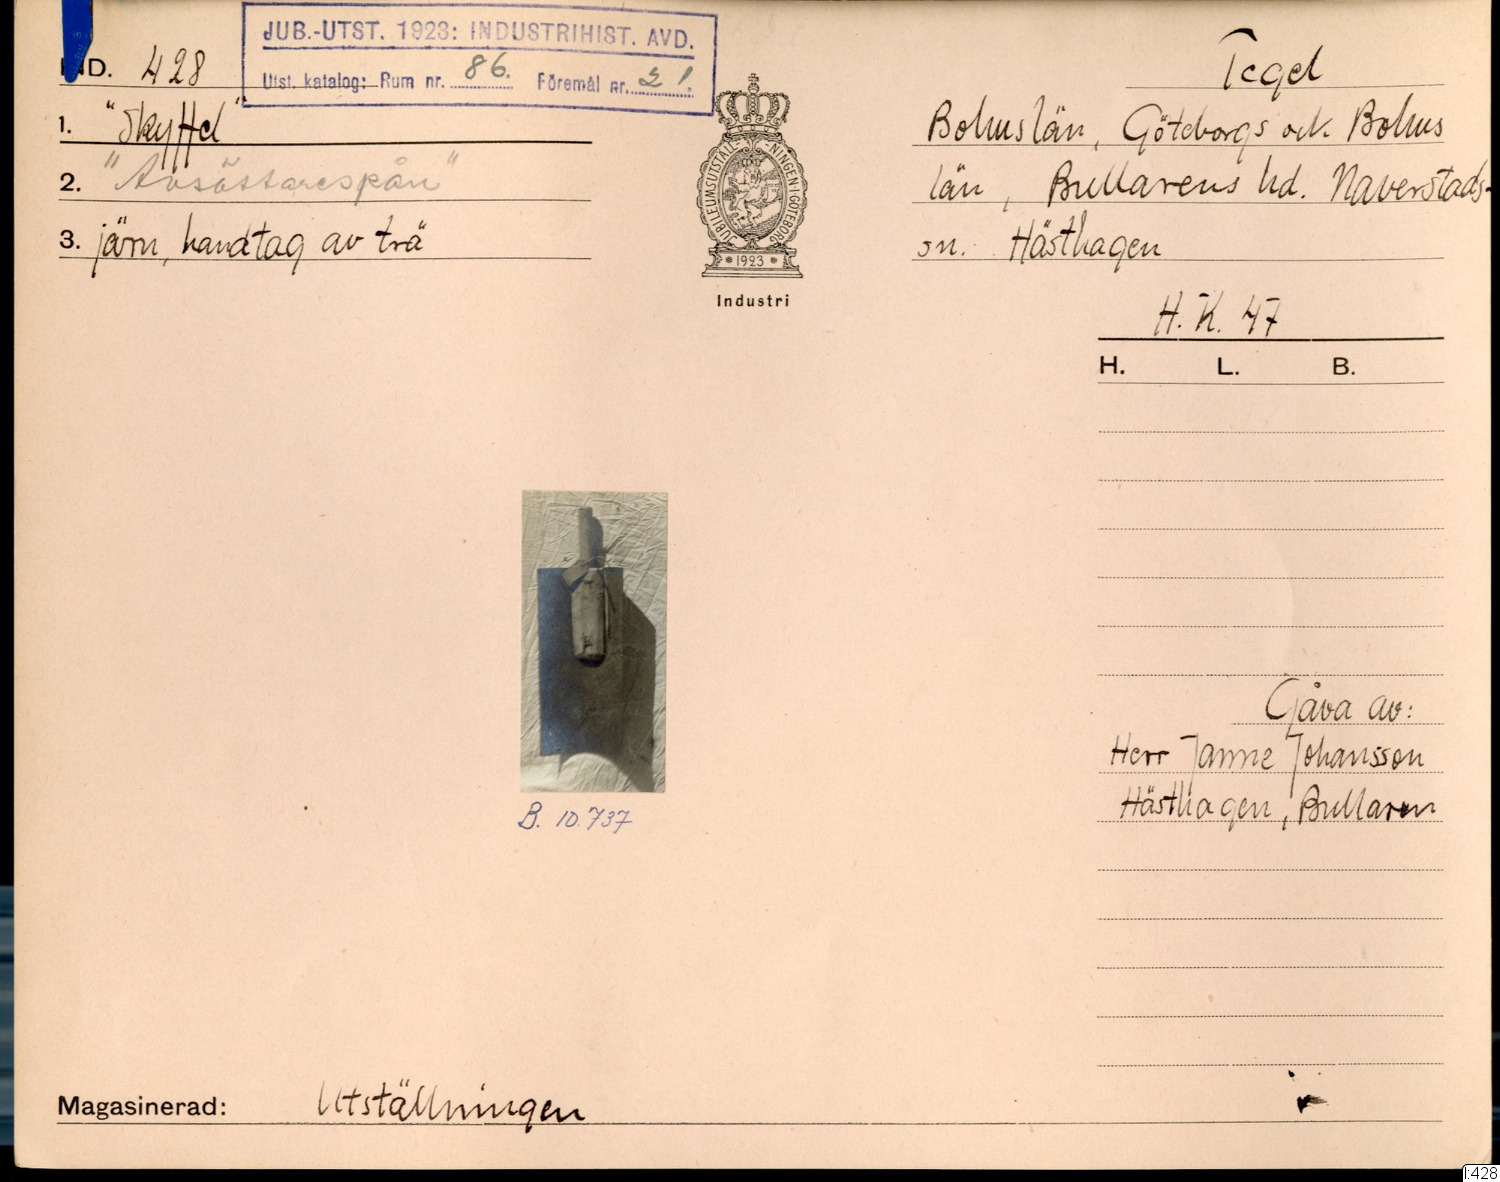 JUB.-UTST. 1923: INDUSTRIHIST. AVD.
Utst. katalog: Rum nr. 86. Föremål nr. 21.
IND. 428
1. "Skyffel"
2. "Avsöstarespån"
3. järn, handtag av trä
JUBILEUMSUTSTÄLLNINGEN I GÖTEBORG
1923
Industri
Tegel
Bohuslän, Göteborgs och Bohus
län, Bullarens hd. Naverstads-
sn. Hästhagen
H. K. 47
H. L. B.
B. 10.737
Gåva av:
Herr Janne Johansson
Hästhagen, Bullaren
Magasinerad: Utställningen
I:428